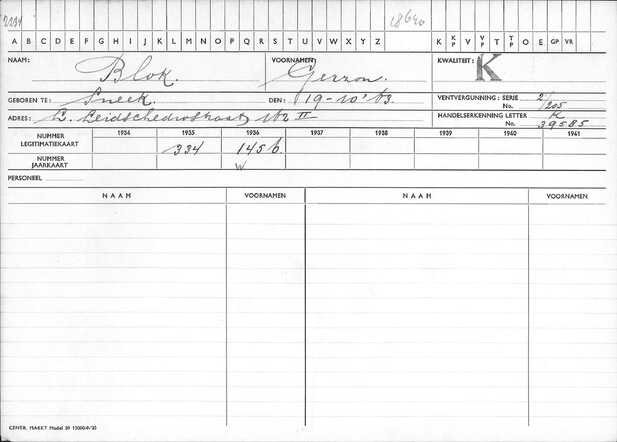 18640
A B C D E F G H I J K L M N O P Q R S T U V W X Y Z K K/P V V/P T T/P O E GP VR
NAAM: Blok. VOORNAMEN Gerzon. KWALITEIT: K
GEBOREN TE: Sneek. DEN: 19-10-'83. VENTVERGUNNING: SERIE 2/ No. 1205
ADRES: L. Leidschedwarsstraat 182 II HANDELSERKENNING LETTER K No. 39585
1934 1935 1936 1937 1938 1939 1940 1941
NUMMER LEGITIMATIEKAART 334 1456
NUMMER JAARKAART W
PERSONEEL
NAAM VOORNAMEN NAAM VOORNAMEN
CENTR. MARKT Model 39